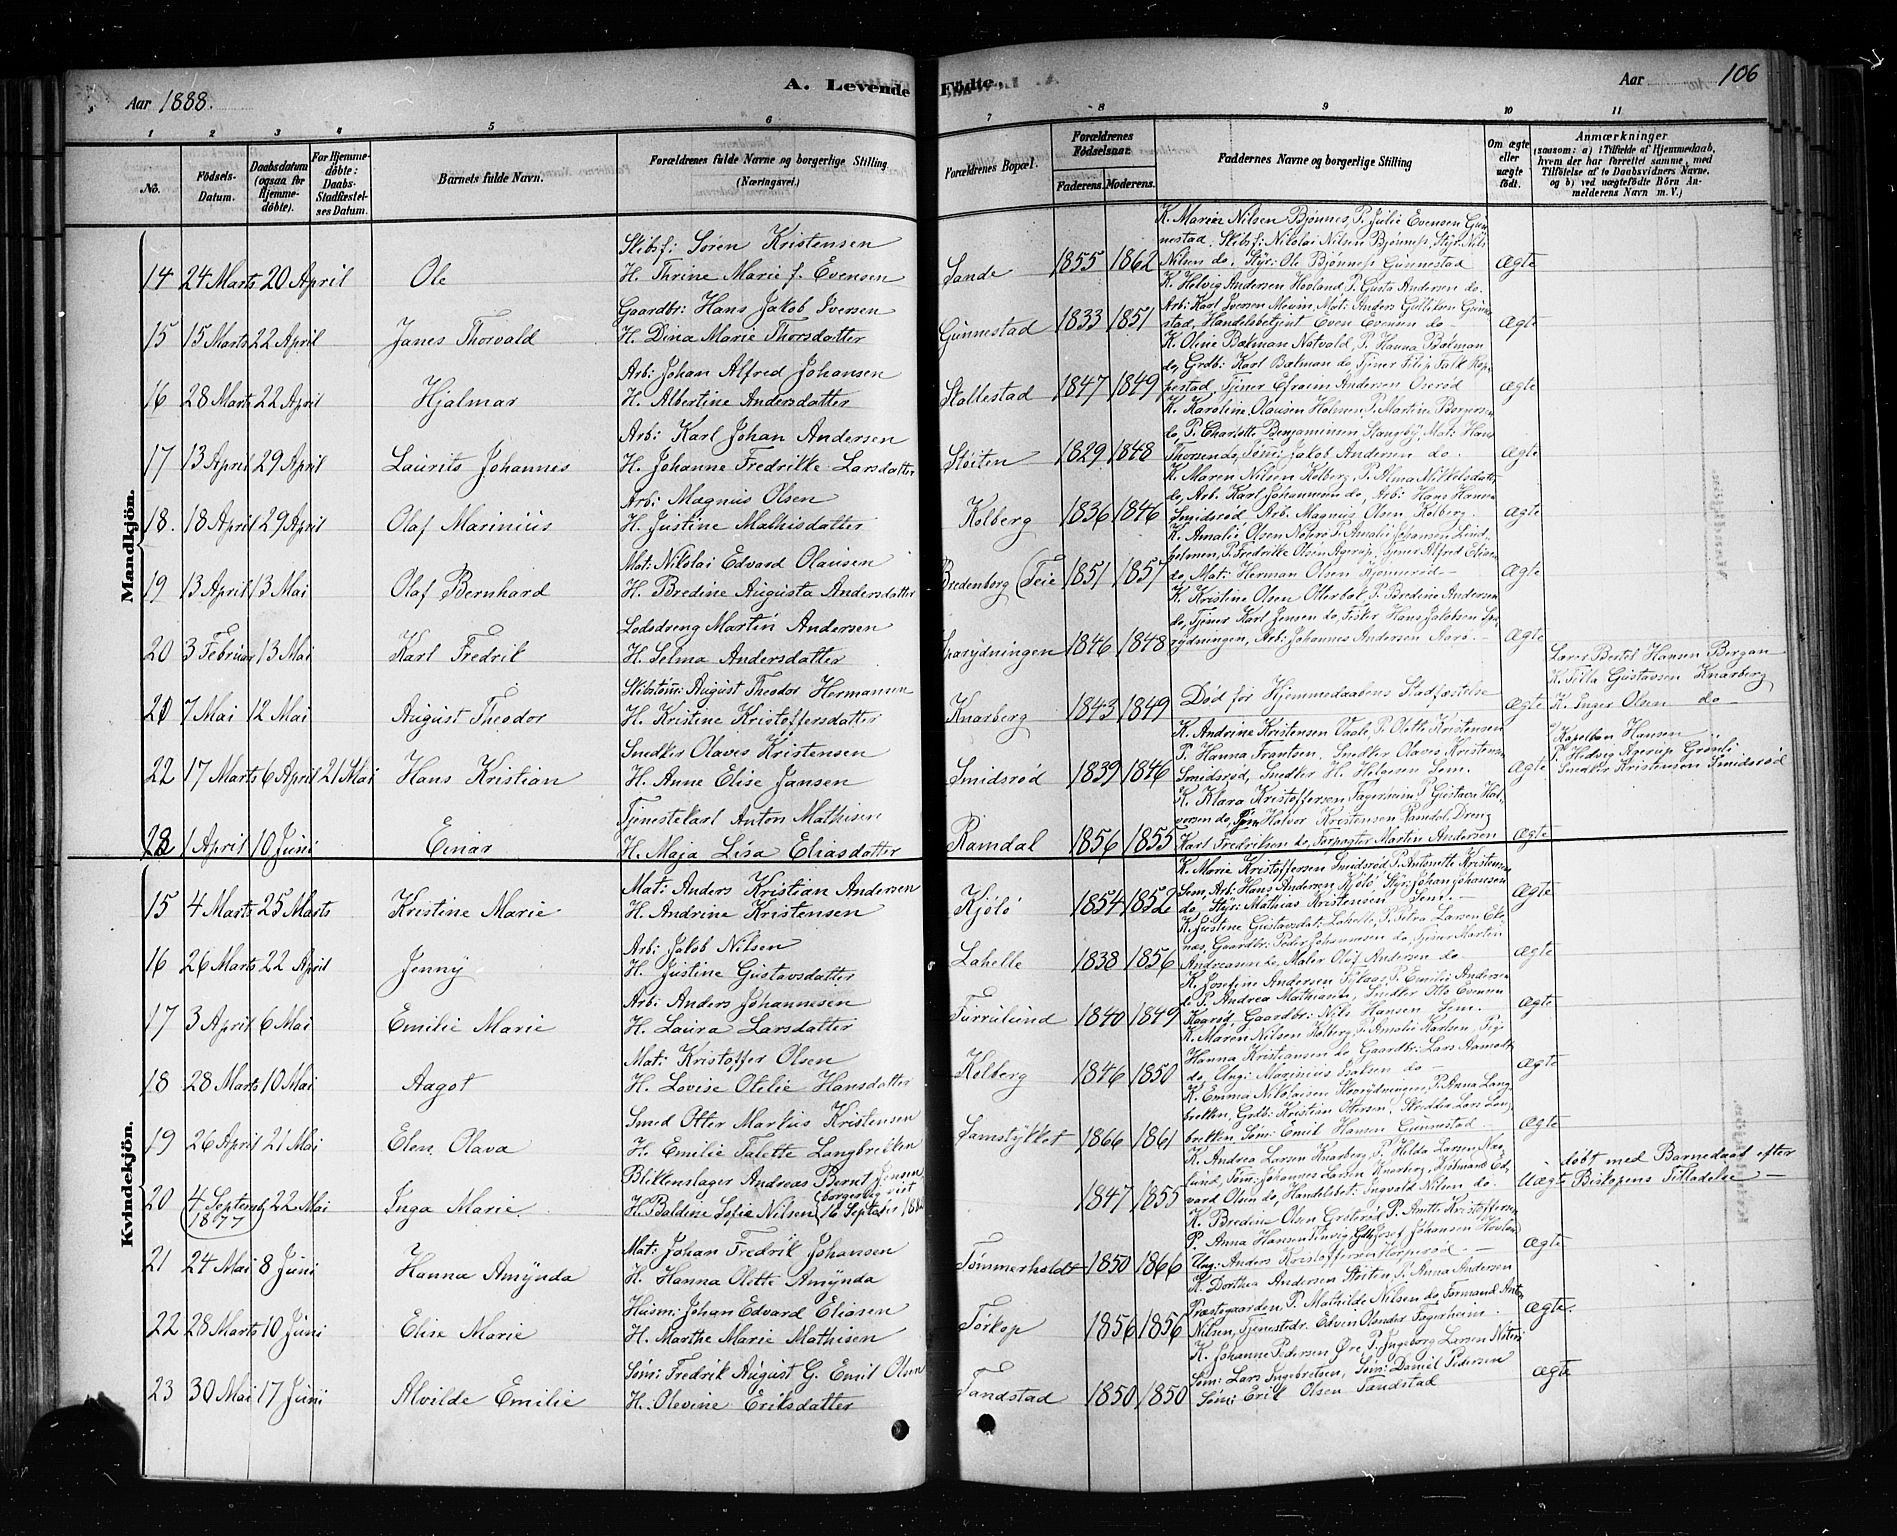 Aar 1888.
A. Levende Födte.
Aar
106
1 2 3 4 5 6 7 8 9 10 11
No.
Födsels-Datum.
Daabsdatum (ogsaa for Hjemme-döbte).
For Hjemme-döbte: Daabs-Stadfæstel-ses Datum.
Barnets fulde Navn.
Forældrenes fulde Navne og borgerlige Stilling (Næringsvei.)
Forældrenes Bopæl.
Forældrenes Födselsaar.
Faderens. Moderens.
Faddernes Navne og borgerlige Stilling
Om ægte eller uægte födt.
Anmærkninger
(saasom: a) i Tilfælde af Hjemmedaab, hvem der har forrettet samme, med Tilföielse af to Daabsvidners Navne, og b) ved uægtefödte Börn An-melderens Navn m. V.)
Mandkjön.
Skibsf: Søren Kristensen
K. Maren Nilsen Bjønnes, P. Julie Evensen Gun-
nestad, Skibsf: Nikolai Nilsen Bjønnes, Styr: Nils
14 24 Marts 20 April Ole H. Thrine Marie f. Evensen Sande 1855 1862 Nilsen do, Styr: Ole Bjønnes Gunnestad Ægte
Gaardbr: Hans Jakob Iversen
K. Helvig Andersen Hovland P. Gusta Andersen do.
15 15 Marts 22 April Janes Thorvald H. Dina Marie Thorsdatter Gunnestad 1833 1851 Arb: Karl Iversen Mat: Anders Gun-
stad, Handelsbetjent Even Evensen do Ægte
Arb: Johan Alfred Johansen
K. Oline Bakman Natvald, P. Hanna Bakman
do, Grdb: Karl Bakman do, Tjener Filip Falk
16 28 Marts 22 April Hjalmar H. Albertine Andersdatter Stoltestad 1847 1849 Tjener Efraim Andersen Ægte
Arb: Karl Johan Andersen
K. Karoline Olausen Holmen P. Martine Borgersen
do, P. Charlotte Benjaminsen Stangeby, Mat: Hans
17 13 April 29 April Laurits Johannes H. Johanne Fredrikke Larsdatter Støiten 1829 1848 Thorsen do, Søm: Jakob Andersen do. Ægte
Arb: Magnus Olsen
K. Maren Nilsen Kolberg, P. Alma Mikkelsdatter
do, Arb: Karl Johannesen do, Arb: Hans Hansen
18. 18 April 29 April Olaf Marinius H. Justine Mathisdatter Kolberg 1836 1846 Smidsrød Arb: Magnus Olsen Kolberg. Ægte
Mat: Nikolai Edvard Olausen
K. Amalie Olsen Nøterø P. Amalie Johansen Lind-
holmen, P. Fredrikke Olsen Agerup, Tjener Alfred Eliasen
19 13 April 13 Mai Olaf Bernhard H. Bredine Augusta Andersdatter Bredenborg (Teie 1851 1857 do, Mat: Herman Olsen Ægte
Lodsdreng Martin Andersen
K. Kristine Olsen Otterbæk P. Bredine Andersen
do, Tjener Karl Jensen do, Fisker Hans Jakobsen
20 3 Februar 13 Mai Karl Fredrik H. Selma Andersdatter 1846 1848 rydningen, Arb: Johannes Andersen Aarø. Ægte
Skibstøm: August Theodor Hermansen
Lærer Bertel Hansen Bergan
K. Tilla Gustavsen Knarberg
21 7 Mai 12 Mai August Theodor H. Kristine Kristoffersdatter Knarberg 1843 1849 Død før Hjemmedaabens Stadfæstelse Ægte K. Inger Olsen do
Snedker Olaves Kristensen
K. Andrine Kristensen Vaale, P. Olette Kristensen
P. Hanna Frantsen, Snedker Olaves Kristensen
Kapellan Hansen
P. Hedvig Agerup Grønli
22 17 Marts 6 April 21 Mai Hans Kristian H. Anne Elise Jansen Smidsrød 1839 1846 Smidsrød, Snedker H. Helgesen Sem. Ægte Snedker Kristensen Smidsrød
Tjenestekarl Anton Mathisen
K. Klara Kristoffersen Fagerheim P. Gustava Hal-
vorsen do, Halvor Kristensen Ramdal, Dreng
1 April 10 Juni Einar H. Maja Lisa Eliasdatter Ramdal 1856 1855 Karl Fredriksen do, Forpagter Martin Andersen Ægte
Kvindekjön.
Mat: Anders Kristian Andersen
K. Marie Kristoffersen Smidsrød P. Antonette Kristensen
Sem, Arb: Hans Andersen Kjölö, Styr: Johan Johansen
15 4 Marts 25 Marts Kristine Marie H. Andrine Kristensen Kjölö 1854 1852 do, Styr: Mathias Kristensen Sem. Ægte
Arb: Jakob Nilsen
K. Justine Gustavsdat: Lahelle, P. Petra Larsen Eke-
næs, Gaardbr: Peder Johannesen do, Tjener Martin
16 26 Marts 22 April Jenny H. Justine Gustavsdatter Lahelle 1838 1856 Andreassen do, Maler Olof Andersen do Ægte
Arb: Anders Johannesen
K. Josefine Andersen P. Emilie Andersen
do P. Andrea Mathiasen, Snedker Otto Evensen
17 3 April 6 Mai Emilie Marie H. Laura Larsdatter Furrulund 1840 1849 Kaarød, Gaardbr: Nils Hansen Sem. Ægte
Mat: Kristoffer Olsen
K. Maren Nilsen Kolberg, P. Amalie Karlsen, Pige
Hanna Kristiansen do Gaardbr: Lars Aamodt
18 28 Marts 10 Mai Aagot H. Lovise Otelie Hansdatter Kolberg 1846 1850 do, Ung: Marinius do Ægte
Smed Otter Markus Kristensen
K. Emma Nikolaisen P. Anna Lang-
brekken, Grdb: Kristian Ottersen, Skrædder Lars Lang-
19 26 April 21 Mai Elen Olava H. Emilie Talette Langbrekken Samstykket 1866 1861 brekken Søm: Emil Hansen Gunnestad. Ægte
Blikkenslager Andreas Bernt Jensen
K. Andrea Larsen Knarberg, P. Hilda Larsen Næs-
lund, Tøm: Johannes Larsen Knarberg, Kjøbmand Ed-
döbt med Barnedaab efter
20 4 Septemb. (1877) 22 Mai Inga Marie H. Baldine Sofie Nilsen (borgerlig viet 16 September 188 1847 1855 vard Olsen do, Handelsbet: Ingvald Nilsen do. Uægte Biskopens Tilladelse
Mat: Johan Fredrik Johansen
K. Bredine Olsen Grøterød P. Anette Kristoffersen
P. Anna Hansen Josef Johansen Hovland
21 24 Mai 8 Juni Hanna Amynda H. Hanna Olette Amynda Tømmerholdt 1850 1866 Ung: Anders Kristoffersen Ægte
Husm: Johan Edvard Eliasen
K. Dorthea Andersen Støiten, P. Anna Andersen
Præstegaarden P. Mathilde Nilsen do, Formand Anton
22 28 Marts 10 Juni Elise Marie H. Marthe Marie Mathisen Torkop 1856 1856 Nilsen, Tjenestdr: Edvin Olander Fagerheim. Ægte.
Søm: Fredrik August G. Emil Olsen
K. Johanne Pedersen Øre, P. Ingeborg Larsen Nøterø
Søm: Lars Ingebretsen, Søm: Daniel Pedersen
23 30 Mai 17 Juni Alvilde Emilie H. Olevine Eriksdatter Tandstad 1850 1850 Søm: Erik Olsen Tandstad Ægte